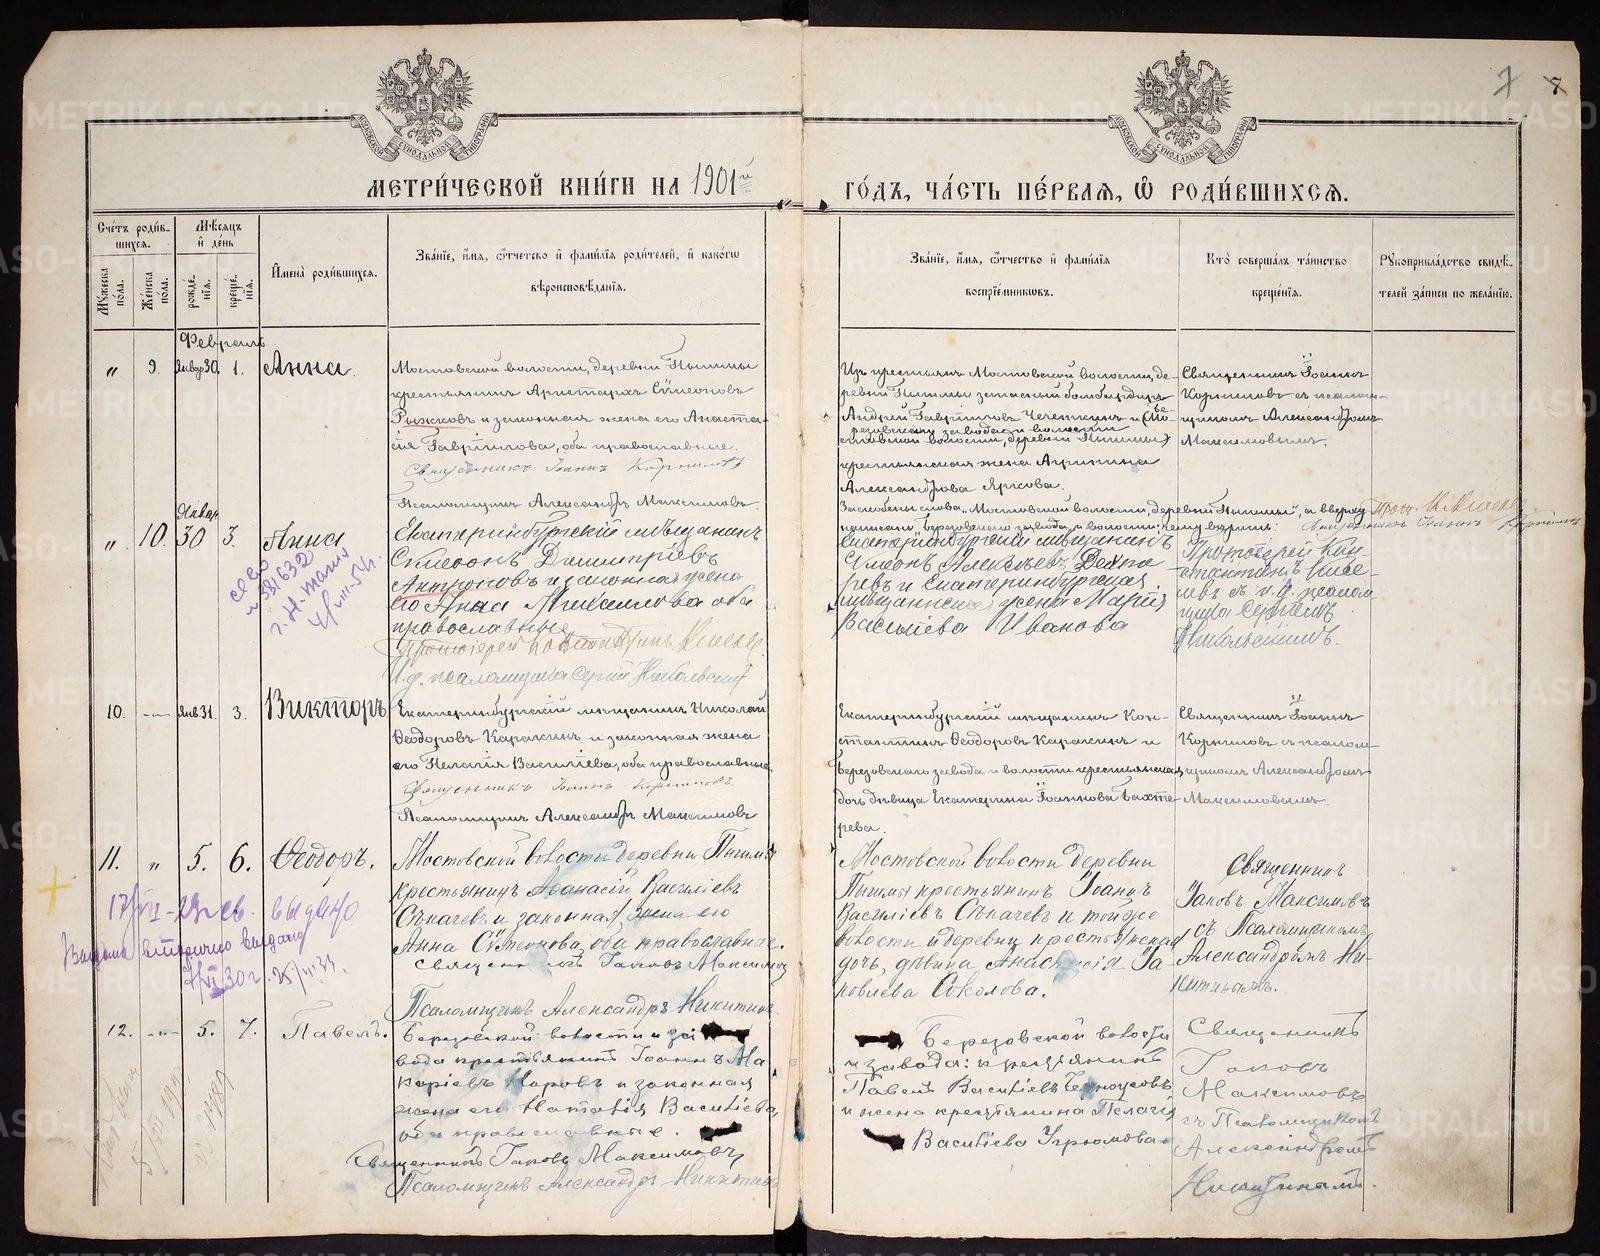 МЕТРИ́ЧЕСКОЙ КНИ́ГИ НА 1901й ГО́ДЪ, ЧА́СТЬ ПЕ́РВАѦ, Ѿ РОДИ́ВШИХСѦ.
Сче́тъ роди́в-
шихсѧ.
Мѣ́сѧцъ
и҆ де́нь
Мꙋ́жеска
по́ла.
Же́нска
по́ла.
рожде́-
нїѧ.
креще́-
нїѧ.
И҆мена̀ роди́вшихсѧ.
Зва́нїе, и҆́мѧ, ѻ҆́тчество и҆ фами́лїѧ роди́телей, и҆ како́гѡ
вѣроисповѣ́данїѧ.
Зва́нїе, и҆́мѧ, ѻ҆́тчество и҆ фами́лїѧ
воспрїе́мникѡвъ.
Кто̀ соверша́лъ та́инство
креще́нїѧ.
Рꙋкоприкла́дство свидѣ́-
телей за́писи по жела́нїю.
Февраль
" 9. Январ 30. 1. Анна.
Мостовской волости, деревни Пышмы
крестьянин Аристархъ Сѵмеоновъ
Рыжковъ и законная жена его Анаста-
сія Гавріилова, оба православные.
Священникъ Іоаннъ Корниловъ
Псаломщикъ Александръ Максимовъ.
Изъ крестьянъ Мостовской волости, де-
ревни Пышмы запасный бомбардиръ
Андрей Гавріиловъ Черепкинъ и (Мо-
стовской волости, деревни Пышмы)
Березовскаго завода и волости
крестьянская жена Агрипина
Александрова Яркова.
Священникъ Іоаннъ
Корниловъ съ псалом-
щикомъ Александромъ
Максимовымъ.
Январ
" 10. 30 3. Анна
Екатеринбургскій мѣщанинъ
Сѵмеонъ Димитріевъ
Антроповъ и законная жена
его Анна Михаилова оба
православные
Протоіерей Константинъ
И. д. псаломщика Сергій Никольскій
Екатеринбургскій мѣщанинъ
Сѵмеонъ Алексѣевъ
и Екатеринбургская
мѣщанская жена Марія
Васильева Иванова
Протоіерей Кон-
стантинъ
съ и. д. псалом-
щика Сергіемъ
Никольскимъ.
10. Янв 31. 3. Викторъ
Екатеринбургскій мѣщанинъ Николай
Ѳеодоровъ Каракинъ и законная жена
его Пелагія Василіева, оба православные.
Священникъ Іоаннъ Корниловъ.
Псаломщикъ Александръ Максимовъ
Екатеринбургскій мѣщанинъ Кон-
стантинъ Ѳеодоровъ Каракинъ и
Березовскаго завода и волости крестьянская
дочь дѣвица Екатерина Іоаннова Бахте-
рева.
Священникъ Іоаннъ
Корниловъ съ псалом-
щикомъ Александромъ
Максимовымъ.
11. " 5. 6. Ѳеодоръ.
Мостовской волости деревни Пышмы
крестьянинъ Аѳанасій Василіевъ
Сѣкачевъ и законная жена его
Анна Сѵмеонова, оба православные.
Священникъ Іаковъ Максимовъ
Псаломщикъ Александръ Никитинъ
Мостовской волости деревни
Пышмы крестьянинъ Іоаннъ
Василіевъ Сѣкачевъ и той же
волости и деревни крестьянская
дочь, дѣвица Анастасія Іа-
ковлева Соколова.
Священникъ
Іаковъ Максимовъ
съ Псаломщикомъ
Александромъ Ни-
китинымъ.
12. 5. 7. Павелъ.
Березовской волости и за
вода крестьянинъ Іоаннъ Ма
каріевъ Паровъ и законная
жена его Наталія Василіева,
оба православные.
Священникъ Іаковъ Максимовъ
Псаломщикъ Александръ Никитинъ
Березовской волости
и завода: крестьянинъ
Павелъ Василіевъ Черноусовъ
и жена крестьянина Пелагія
Василіева Угрюмова
Священникъ
Іаковъ
Максимовъ
съ Псаломщикомъ
Александромъ
Никитинымъ.